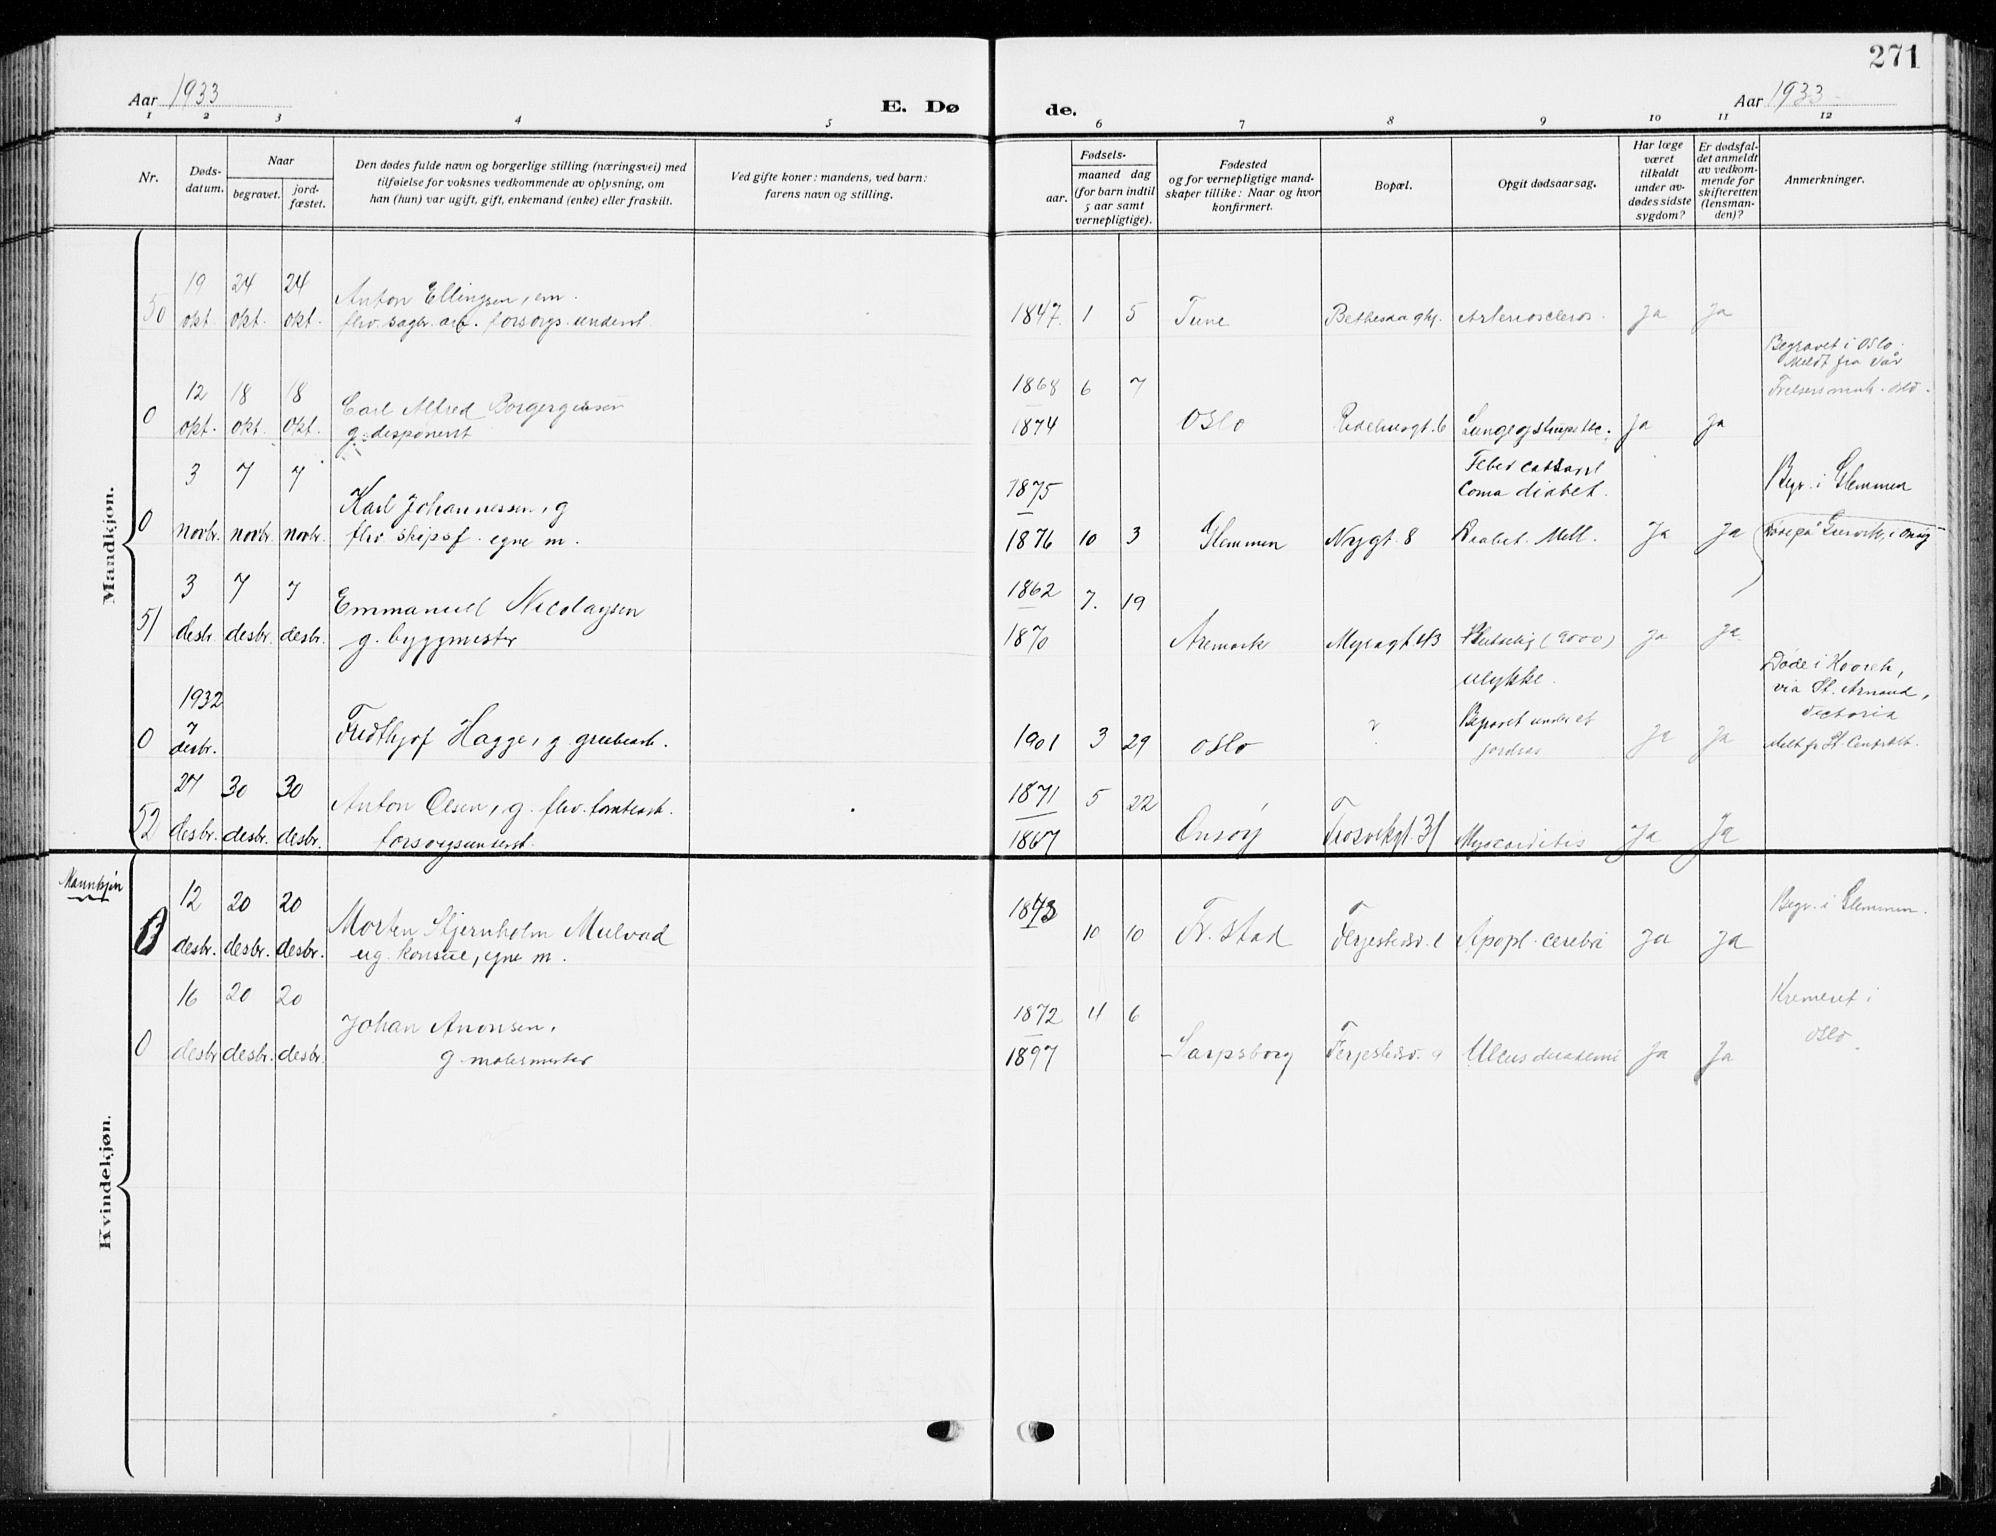 271
Aar 1933
E. Dø de.
Aar 1933
1 2 3 4 5 6 7 8 9 10 11 12
Nr.
Døds-
datum.
Naar
begravet.
jord-
fæstet.
Den dødes fulde navn og borgerlige stilling (næringsvei) med
tilføielse for voksnes vedkommende av oplysning, om
han (hun) var ugift, gift, enkemand (enke) eller fraskilt.
Ved gifte koner: mandens, ved barn:
farens navn og stilling.
Fødsels-
aar.
maaned dag
(for barn indtil
5 aar samt
vernepligtige).
Fødested
og for vernepligtige mand-
skaper tillike: Naar og hvor
konfirmert.
Bopæl.
Opgit dødsaarsag.
Har læge
været
tilkaldt
under av-
dødes sidste
sygdom?
Er dødsfal-
det anmeldt
av vedkom-
mende for
skifteretten
(lensman-
den)?
Anmerkninger.
Mandkjøn.
50 19 okt. 24 okt. 24 okt. Anton Ellingsen, em.
flv. sagbr. arb. forsorgs.underst.
1847 1 5 Tune Arterioscleros. Ja Ja
0 12 okt. 18 okt. 18 okt. Carl Alfred
g. disponent
1868 6 7
1874 Oslo Ja Ja
Begravet i Oslo.
Meldt fra Vår
Frelsers menh. Oslo.
0 3 novbr. 7 novbr. 7 novbr. Karl Johannessen, g
flv skipsf. egne m.
1875
1876 10 3 Glemmen Nygt. 8
Coma diabet.
Diabet. Mell. Ja Ja
Begr. i Glemmen
51 3 desbr. 7 desbr. 7 desbr. Emmanuel Nicolaysen
g. byggmester
1862 7. 19
1870 Aremark Ja Ja
0 1932 7 desbr. Hagge, g. grubearb.
1901 3 29 Oslo ?
ulykke.
Begravet under et
jordras Ja Ja
Døde i
via St. Arnaud,
Victoria
52 27 desbr. 30 desbr. 30 desbr. Anton Olsen, g. flv. tomtearb.
forsorgsunderst.
1871 5 22
1867 Onsøy Trosvikgt. 31 Myocarditis Ja Ja
Mannkjøn
Kvindekjøn.
0 12 desbr. 20 desbr. 20 desbr. Morten Stjernholm Mulvad
ug. konsul, egne m.
1873 10 10 Fr.stad Ferjestedsv. 1 Apopl. cerebri Ja Ja
Begr. i Glemmen.
0 16 desbr 20 desbr. 20 desbr. Johan Aronsen,
g. malermester
1872 11 6
1897 Sarpsborg Ferjestedsv. 9 Ulcus duodeni Ja Ja
Kremeret i
Oslo.